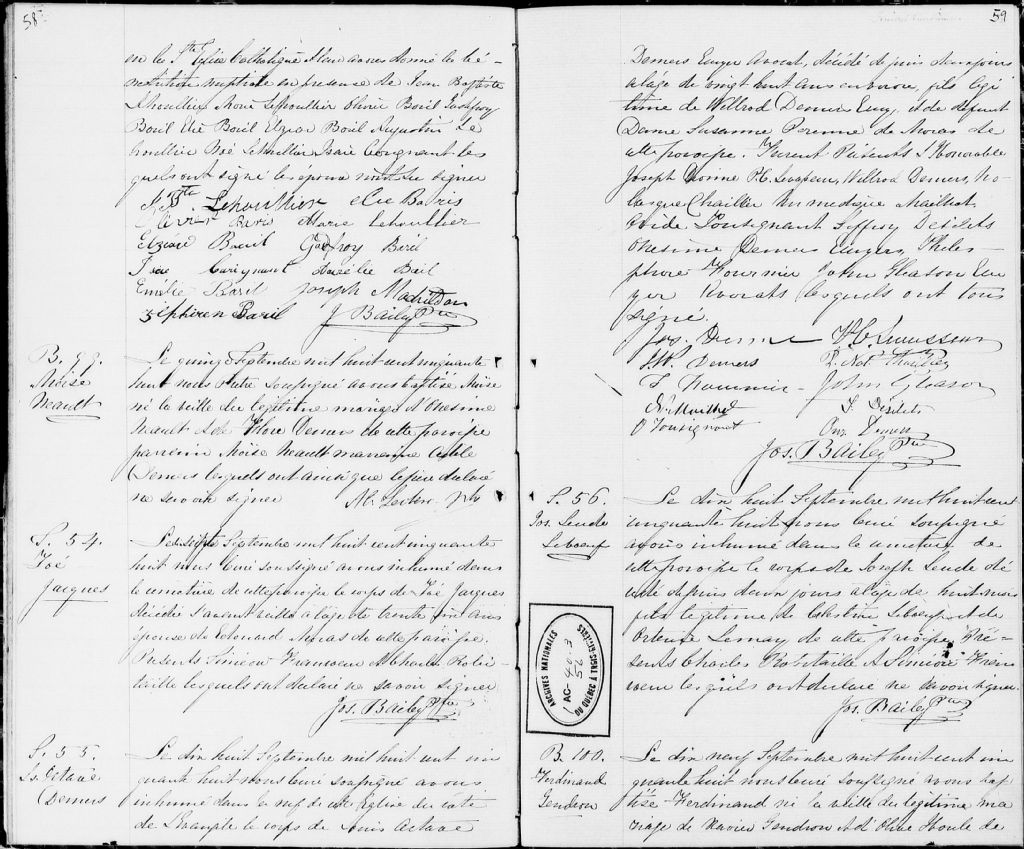 58
en la Ste Eglise Catholique leur avons donné la bé-
nédiction nuptiale en presence de Jean Baptiste
Lehoullier Moïse Lehoullier Olivier Baril Godfroy
Baril Elie Baril Elzear Baril Augustin Le
houllier Noé Lehoullier Isaïe Courgnant les
quels ont signé les epoux n'ont su signer
J. Bte Lehoullier Elie Baris
Olivier Baris Marie Lehoullier
Elzear Baril Godfroy Beril
Isae Aurélie Bail
Emélie Baril Joseph
Ziphiren Baril J Bailey Ptre
B. 99.
Moïse
Neault
Le quinze Septembre mil huit cent cinquante
huit nous Pretre soussigné avons baptisé Moïse
né la veille du legitime mariage d'Onesime
Neault & de Flore Demers de cette paroisse
parrain Moïse Neault marraine
Demers lesquels ont ainsi que le père declaré
ne savoir signer Al. Leclerc Ptre
S. 54.
Zoé
Jacques
Le Septembre mil huit cent cinquante
huit nous Curé soussigné avons inhumé dans
le cimetière de cette paroisse le corps de Zoé Jacques
décédée l'avant veille à l'age de trente ans
épouse de Edouard de cette paroisse.
Présents Simeon Charles Robi-
taille lesquels ont declaré ne savoir signer
Jos. Bailey Ptre
S. 55.
Ls. Octave
Demers
Le dix huit Septembre mil huit cent cin
quante huit nous Curé soussigné avons
inhumé dans la nef de cette Eglise du coté
de L'Evangile le corps de Louis Octave
59
Demers Ecuyer Avocat, décédé depuis deux jours
à l'age de vingt huit ans environ, fils légi
time de Willrod Demers Ecuy. et de defunte
Dame Susanne Perinne de Moras de
cette paroisse. Furent Présents L'Honorable
Joseph Dionne P.C. Willrod Demers, No-
lasque Chaillez Médecin Mailhot,
Ovide Tousignant Jeffrey Désilets
Onesime Demers Ecuyers, Théles-
phore Fournier John Gleason Ecu
yer Avocats lesquels ont tous
signé.
Jos. Dionne
W. Demers
T. Fournier John Gleason
J. Désilets
O Tousignant On. Demers
Jos. Bailey Ptre
S. 56.
Jos. Leude
Leboeuf
Le dix huit Septembre mil huit cent
cinquante huit nous Curé soussigné
avons inhumé dans le cimetière de
cette paroisse le corps de Joseph Leude dé
cédé depuis deux jours à l'age de huit mois
fils legitime de Célestin Leboeuf & de
Ortense Lemay de cette paroisse Pré-
sents Charles Robitaille & Siméon
lesquels ont declaré ne savoir signer
Jos. Bailey Ptre
ARCHIVES NATIONALES
DU QUÉBEC À TROIS-RIVIÈRES
AC- 40.3
56
B. 100.
Ferdinand
Gendron
Le dix neuf Septembre mil huit cent cin
quante huit nous Curé soussigné avons bap
tisé Ferdinand né la veille du légitime ma
riage de Xavier Gendron & d'Olive Houle de